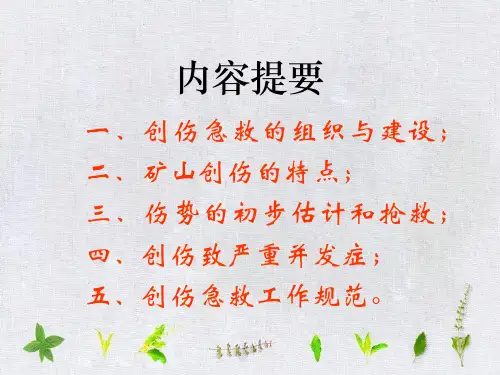 内容提要
一、创伤急救的组织与建设；
二、矿山创伤的特点；
三、伤势的初步估计和抢救；
四、创伤致严重并发症；
五、创伤急救工作规范。